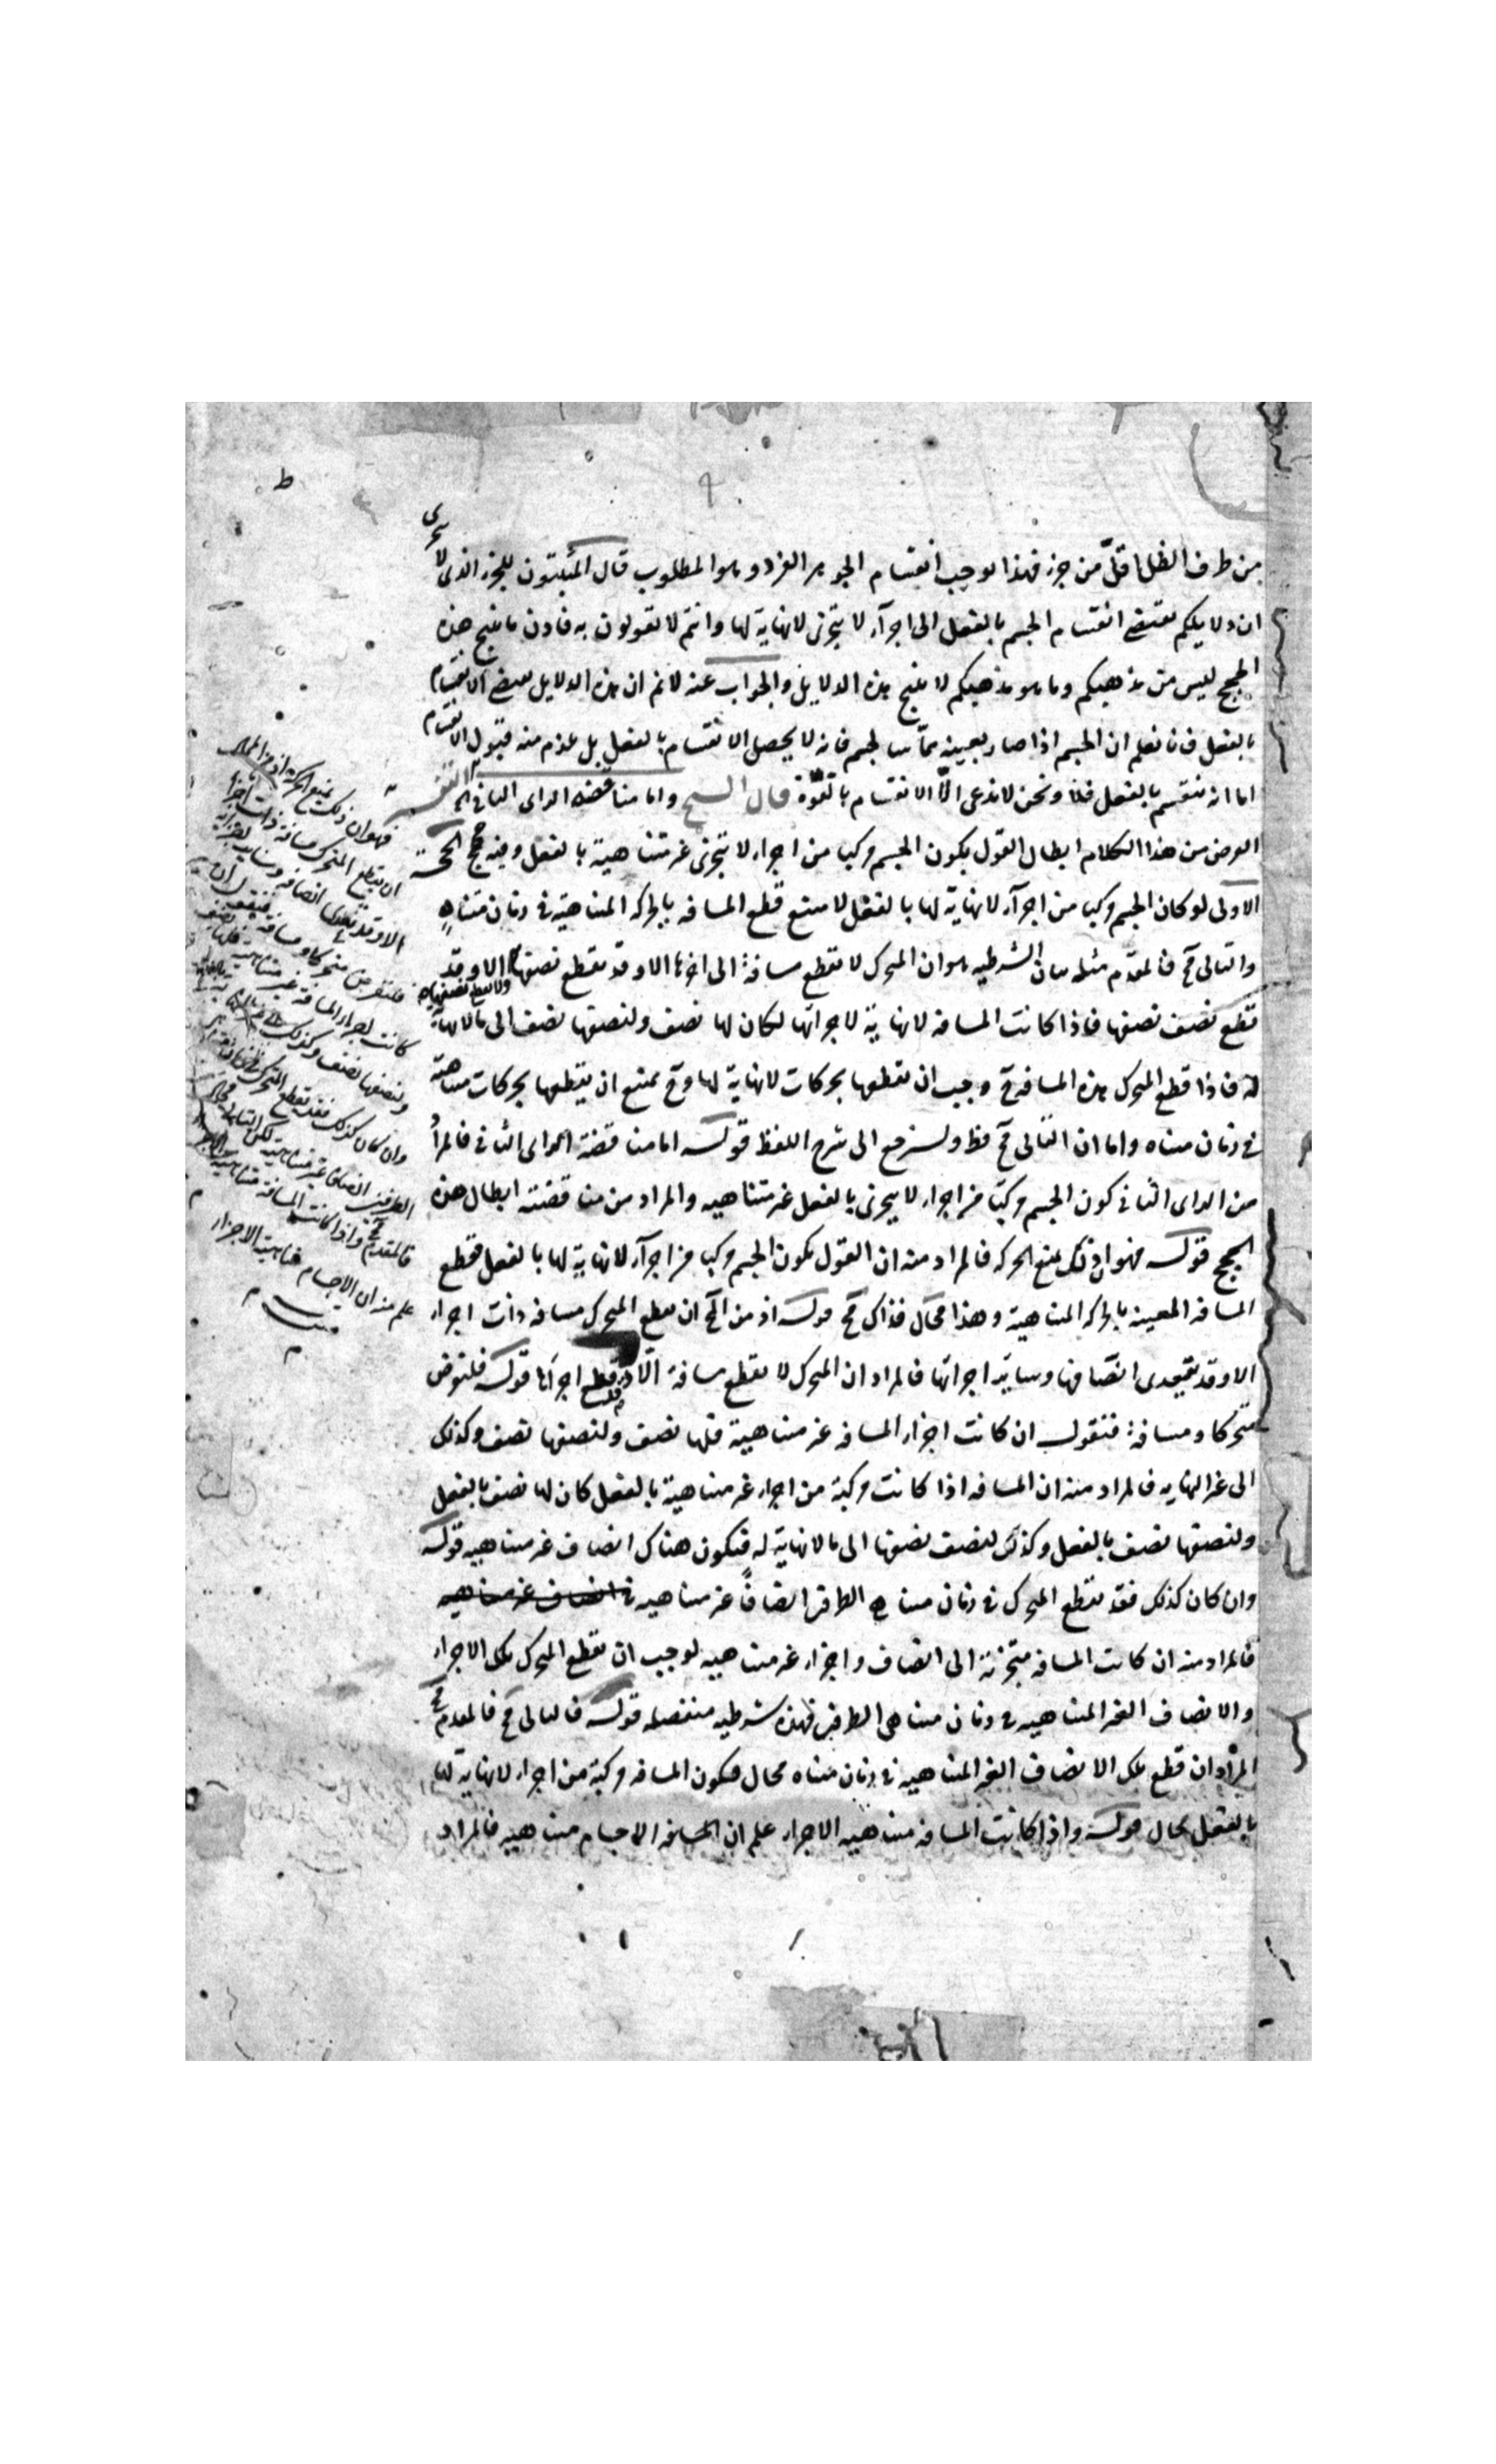 ط
من طرف الظل اقلّ من جزء فهذا يوجب انقسام الجوهر الفرد وهو المطلوب قال المثبتون للجزء الذى لا يتجزى
ان دلايلكم تقتضى انقسام الجسم بالفعل الى اجزآء لا يتجزى لا نهاية لها وانتم لا تقولون به فاذن ما ينتج هذه
الحجج ليس من مذهبكم وما هو مذهبكم لا ينتج هذه الدلايل والجواب عنه لا نم ان هذه الدلايل تقتضى الانقسام
بالفعل فانا نعلم ان الجسم اذا صار بعينه مماسا لجسم فانه لا يحصل الانقسام بالفعل بل يلزم منه قبول الانقسام
اما انه ينقسم بالفعل فلا ونحن لا ندعى الّا الانقسام بالقوّة قال الشيخ واما مناقضة الراى الثانى الى التفسير
الغرض من هذا الكلام ابطال القول بكون الجسم مركبا من اجزاء لا يتجزى غير متناهية بالفعل وفيه حجج الحجة
الاولى لو كان الجسم مركبا من اجزآء لا نهاية لها بالفعل لامتنع قطع المسافه بالحركه المتناهية فى زمان متناهٍ
والتالى مح فالمقدّم مثله بيان الشرطيه هو ان المتحرك لا يقطع مسافة الى اخرها الا وقد يقطع نصفها ولا يقطع نصفها الا وقد
قطع نصف نصفها فاذا كانت المسافه لا نهاية لاجزائها لكان لها نصف ولنصفها نصف الى ما لا نهاية
له فاذا قطع المتحرك هذه المسافه وجب ان يقطعها بحركات لا نهاية لها وح يمتنع ان يقطعها بحركات متناهية
فى زمان متناه واما ان التالى مح فظ ولنرجع الى شرح اللفظ قوله اما مناقضة الراى الثانى فالمراد
من الراى الثانى كون الجسم مركبّا من اجزاء لا يتجزى بالفعل غير متناهيه والمراد من مناقضته ابطال هذه
الحجج قوله فهو ان ذلك يمنع الحركه فالمراد منه ان القول بكون الجسم مركبا من اجزآء لا نهاية لها بالفعل فقطع
المسافه المعينه بالحركه المتناهية وهذا محال فذاك مح قوله اذ من المح ان يقطع المتحرك مسافه ذات اجزاء
الا وقد تعدى انصافها وساير اجزائها فالمراد ان المتحرك لا يقطع مسافة الّا وقد قطع اجزاها قوله فلنفرض
متحركا ومسافة فنقول ان كانت اجزاء المسافه غير متناهية فلها نصف ولنصفها نصف وكذلك
الى غير النهايه فالمراد منه ان المسافه اذا كانت مركبة من اجزاء غير متناهية بالفعل كان لها نصف بالفعل
ولنصفها نصف بالفعل وكذلك لنصف نصفها الى ما لا نهاية له فيكون هناك انصاف غير متناهيه قوله
وان كان كذلك فقد يقطع المتحرك فى زمان متناهى الطرفين انصافًا غير متناهيه
فالمراد منه ان كانت المسافه متجزئة الى انصاف واجزاء غير متناهيه لوجب ان يقطع المتحرك تلك الاجزاء
والانصاف الغير المتناهيه فى زمان متناهى الطرفين فهذه شرطيه منفصله قوله فالتالى مح فالمقدم مح
المراد ان قطع تلك الانصاف الغير المتناهيه فى زمان متناه محال فيكون المسافه مركبة من اجزاء لا نهاية لها
بالفعل محال قوله واذا كانت المسافه متناهيه الاجزاء علم ان الاجسام متناهيه فالمراد
فهو ان ذلك يمنع الحركة اذ من المحال
ان يقطع المتحرك مسافة ذات اجزا
الا وقد تعدى انصافها وساير اجزايها
فلنفرض متحركا ومسافة فنقول ان
كانت اجزاء المسافة غير متناهية فلها نصف
ولنصفها نصف وكذلك
وان كان كذلك فقد يقطع المتحرك فى زمان متناهى
الطرفين انصافا غير متناهية لكن التالى محال
فالمقدم مح واذا كانت المسافة متناهية الاجزاء
علم منه ان الاجسام متناهية الاجزاء